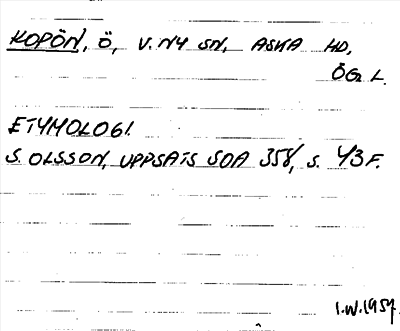 KOPÖN, Ö, V. NY SN, ASKA HD,
ÖG L.
ETYMOLOGI.
S. OLSSON, UPPSATS SOA 358, S. 43 F.
I.W. 1957.